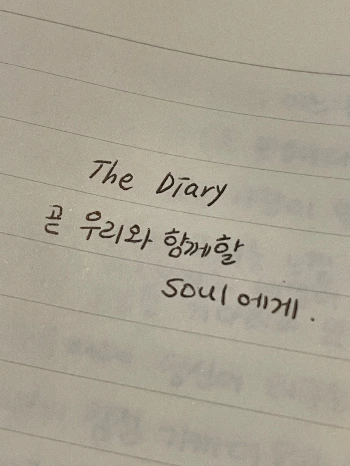 The Diary
곧 우리와 함께할
soul에게.